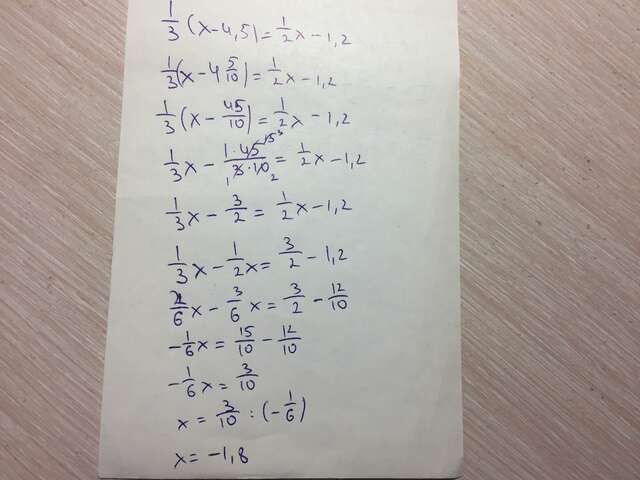 1/3 (x-4,5)=1/2x-1,2
1/3(x-4 5/10)=1/2x-1,2
1/3(x-45/10)=1/2x-1,2
1/3x-1·45 15 3/3·10 1 2=1/2x-1,2
1/3x-3/2=1/2x-1,2
1/3x-1/2x=3/2-1,2
2/6x-3/6x=3/2-12/10
-1/6x=15/10-12/10
-1/6x=3/10
x=3/10:(-1/6)
x=-1,8